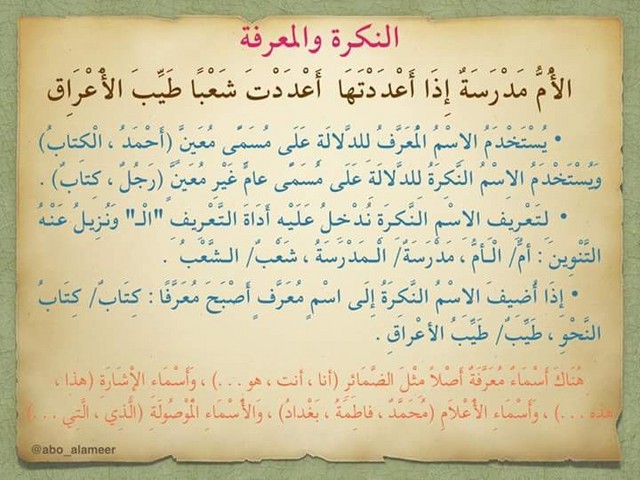 النكرة والمعرفة
الأُمُّ مَدْرَسَةٌ إِذَا أَعْدَدْتَهَا أَعْدَدْتَ شَعْبًا طَيِّبَ الأَعْرَاقِ
• يُسْتَخْدَمُ الاسْمُ الْمُعَرَّفُ لِلدَّلالَةِ عَلَى مُسَمًّى مُعَينَّ (أَحْمَدُ ، الْكتابُ)
وَيُسْتَخْدَمُ الاِسْمُ النَّكِرَةُ لِلدَّلالَةِ عَلَى مُسَمًّى عامٍّ غَيْرِ مُعَينَّ (رَجُلٌ ، كِتَابٌ) .
• لِتَعْرِيفِ الاسْمِ النَّكرَةِ نُدْخلُ عَلَيْهِ أَدَاةَ التَّعْريفِ "الْـ" وَنُزِيلُ عَنْهُ
التَّنْوِينَ : أمٌّ/ الْـأمُّ ، مَدْرَسَةٌ/ الْـمَدْرَسَةُ ، شَعْبٌ/ الـشَّعْبُ .
• إِذَا أُضيفَ الاسْمُ النَّكِرَةُ إِلَى اسْمٍ مُعَرَّفٍ أَصْبَحَ مُعَرَّفًا : كِتَابٌ/ كِتَابُ
النَّحْوِ ، طَيِّبٌ/ طَيِّبُ الأعْراقِ .
هُنَاكَ أَسْمَاءٌ مُعَرَّفَةٌ أَصْلاً مِثْلَ الضَّمَائرِ (أنا ، أنت ، هو . . .) ، وَأَسْمَاء الإِشَارَةِ (هذا ،
هذه . . .) ، وَأَسْمَاءِ الأَعْلَامِ (مُحَمَّدٌ ، فاطِمَةُ ، بَغْدادُ) ، وَالأَسْمَاءِ الْمَوْصُولَةِ (الَّذِي ، الَّتِي . . .)
@abo_alameer